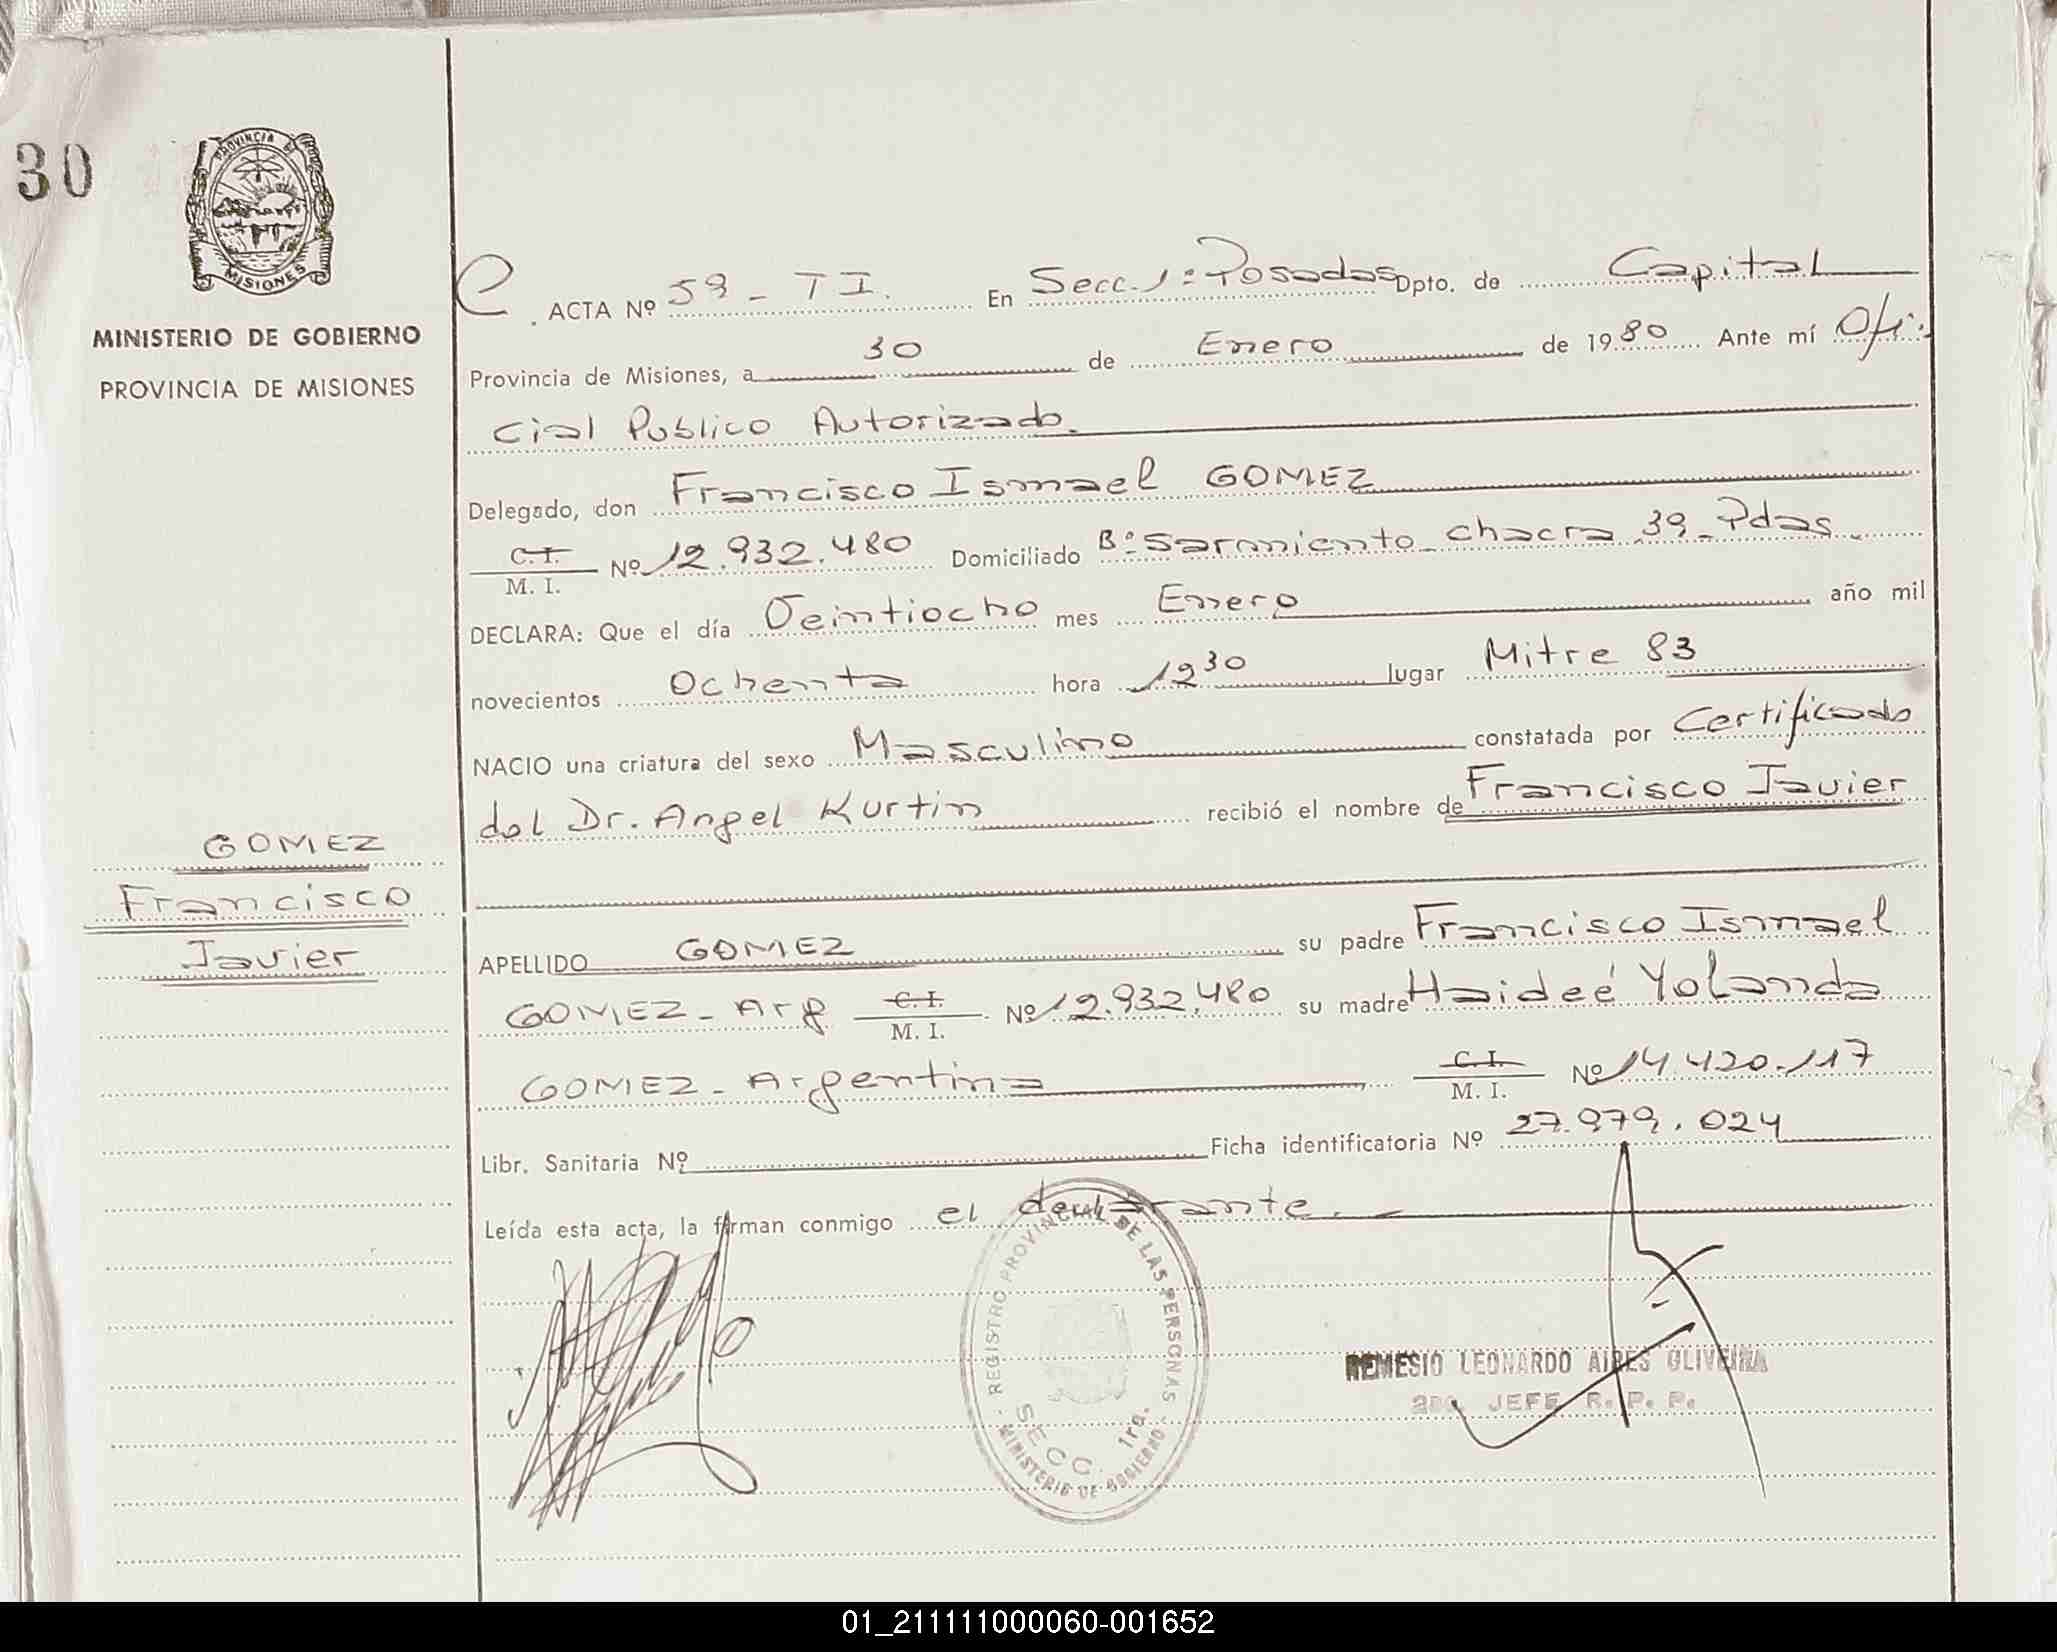 30
PROVINCIA DE
MISIONES
MINISTERIO DE GOBIERNO
PROVINCIA DE MISIONES
ACTA Nº 59 - T I. En Secc. 1: Posadas Dpto. de Capital
Provincia de Misiones, a 30 de Enero de 1980 Ante mí Ofi.
cial Publico Autorizado.
Delegado, don Francisco Ismael GOMEZ
C.I.
M. I. Nº 12.932.480 Domiciliado Bº Sarmiento - chacra 39 - Pdas
DECLARA: Que el día Veintiocho mes Enero año mil
novecientos Ochenta hora 12 30 lugar Mitre 83
NACIO una criatura del sexo Masculino constatada por Certificado
del Dr. Angel Kurtin recibió el nombre de Francisco Javier
GOMEZ
Francisco
Javier
APELLIDO GOMEZ su padre Francisco Ismael
GOMEZ - Arg C.I. M. I. Nº 12.932.480 su madre Haideé Yolanda
GOMEZ - Argentina C.I. M. I. Nº 14.420.117
Libr. Sanitaria Nº Ficha identificatoria Nº 27.979.024
Leída esta acta, la firman conmigo el declarante.
REGISTRO PROVINCIAL DE LAS PERSONAS
SECC. 1ra.
MINISTERIO DE GOBIERNO
REMESIO LEONARDO AIRES OLIVEIRA
2DO. JEFE R. P. P.
01_211111000060-001652